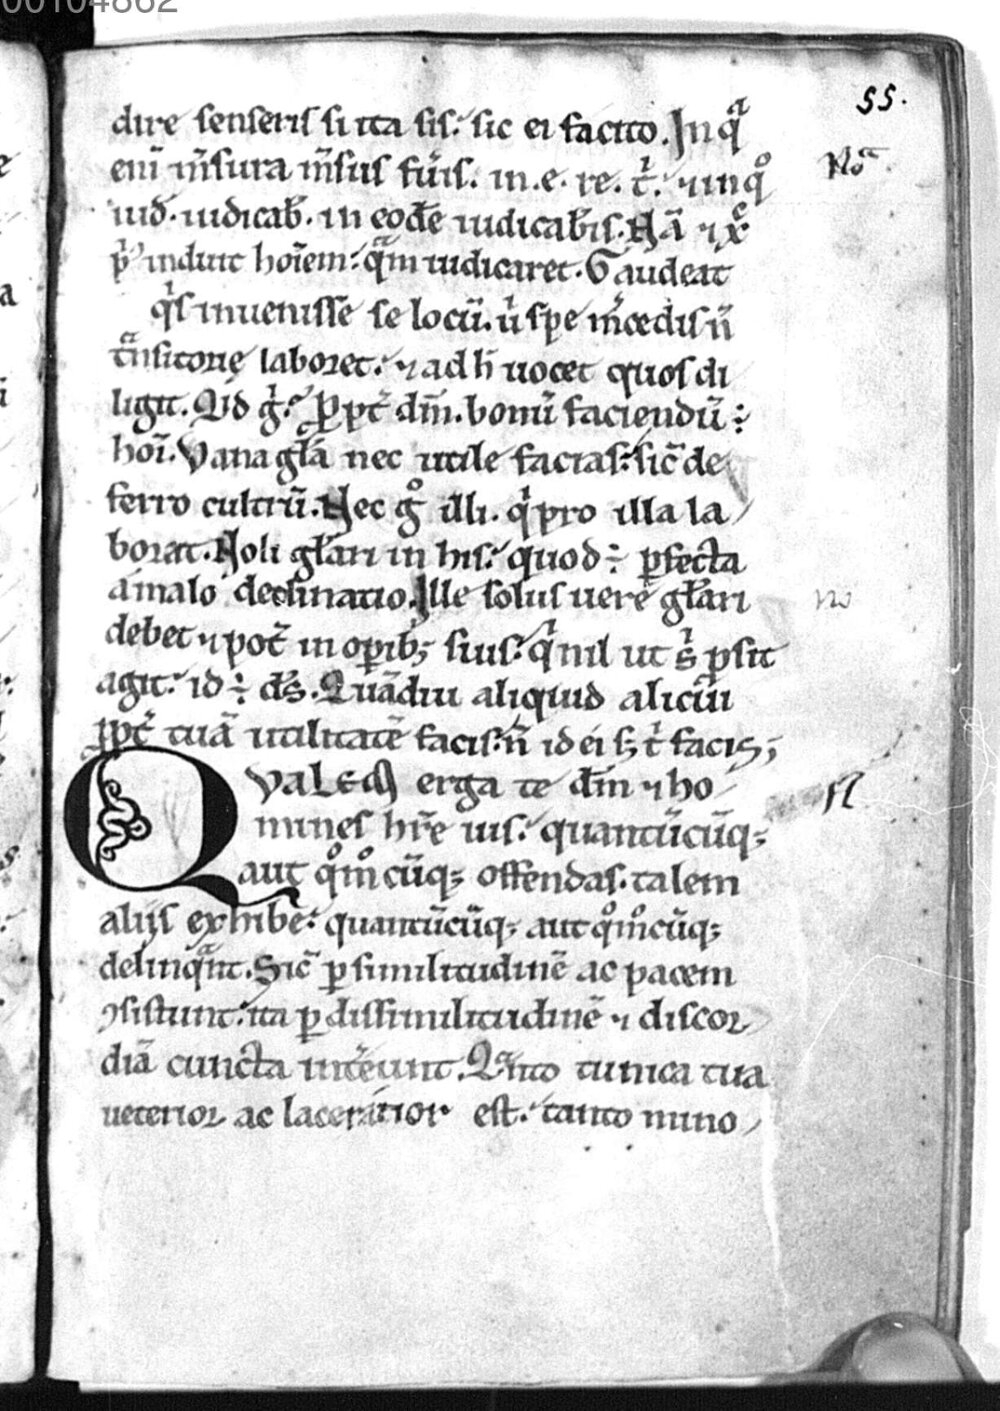 00104862
55.
dire senseris si ita sis. sic ei facito. In qͣ
eni᷑ m̄sura m̄sus fu᷑is. in. e. re. t᷑. ⁊ in qͦ
iud̄. iudicab̄. in eodē iudicab̄is. Nā ⁊ xͨ
p᷑ induit hoīem. qͣm iudicaret. Gaudeat
qͥs inuenisse se locū. uͥ spe m᷑cedis ñ
tͣnsitorię laboret. ⁊ ad h̄ uocet quos di
ligit. Qd gͥ. ꝓpt᷑ dm̄. bonū faciendū ÷
hoī. Vana gl̄a nec utile facias. sic̄ de
ferro cultrū. Nec gͦ illi. qͥ pro illa la
borat. Noli gl̄ari in his. quod ÷ ꝑfecta
a malo declinatio. Ille solus uere gl̄ari
debet ⁊ pot᷑ in oꝑib; suis. qͥ nil ut sͥ ꝓsit
agit. id ÷ ds̄. Quādiu aliquid alicui
ꝓpt᷑ tuā utilitatē facis. ñ id ei sꝫ tͥ facis;
QVALEM erga te dm̄ ⁊ ho
mines hr̄e uis. quantūcūqꝫ
aut qͦmͦcūqꝫ offendas. talem
alijs exhibe. quantūcūqꝫ aut qͦmͦcūqꝫ
delinqͣnt. Sic̄ ꝑ similitudinē ac pacem
ꝯsistunt. ita ꝑ dissimilitudinē ⁊ discor
diā cuncta int᷑eunt. Qͣnto tunica tua
ueterior ac laceratior est. tanto mino
Noͣ.
no